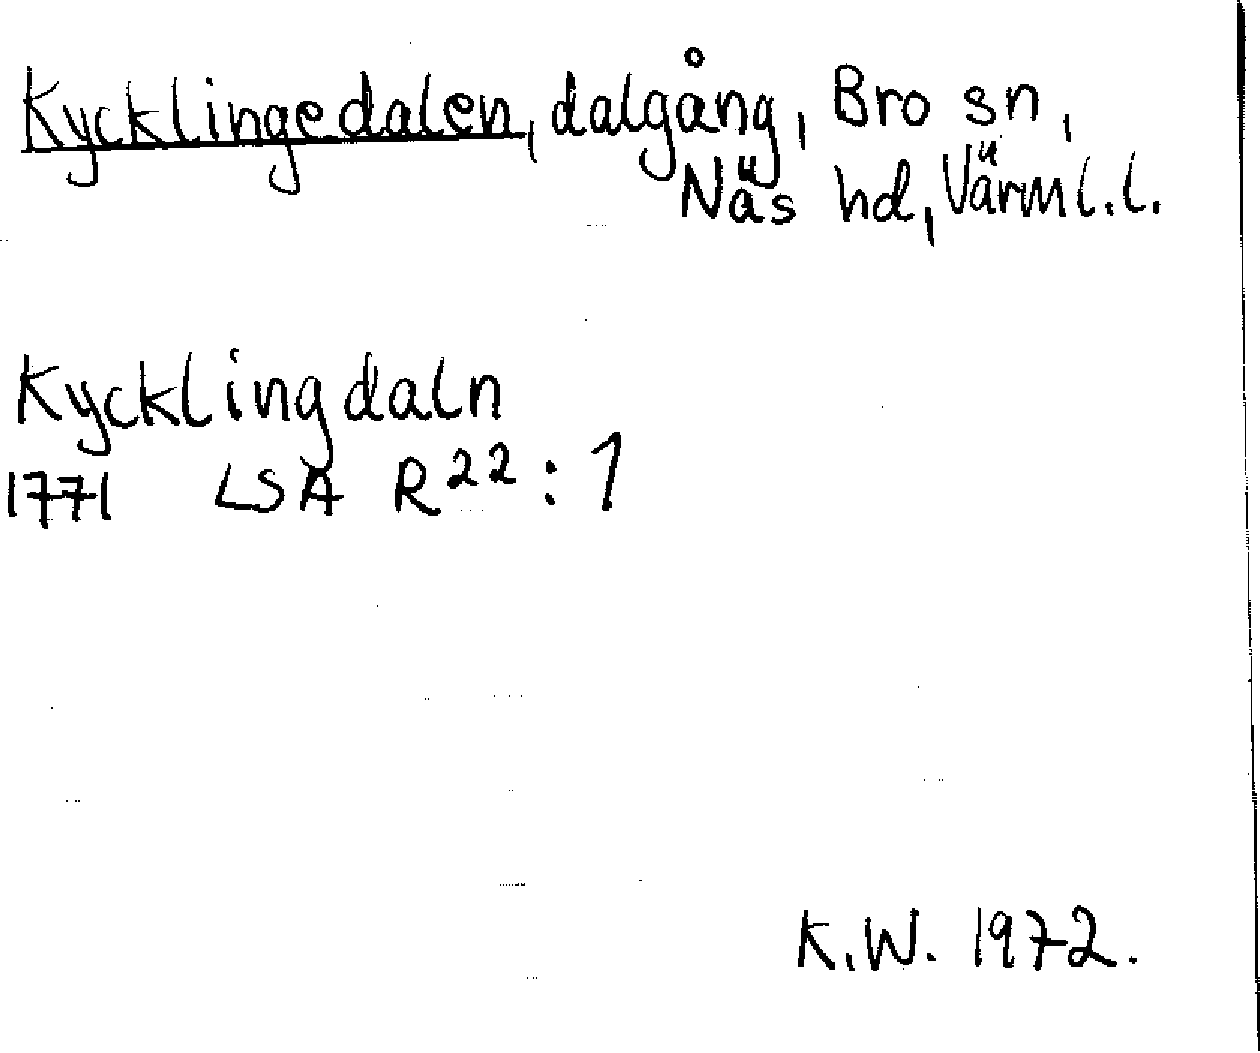 Kycklingedalen, dalgång, Bro sn,
Näs hd, Värml. l.
Kycklingdaln
1771 LSA R22:1
K.W. 1972.